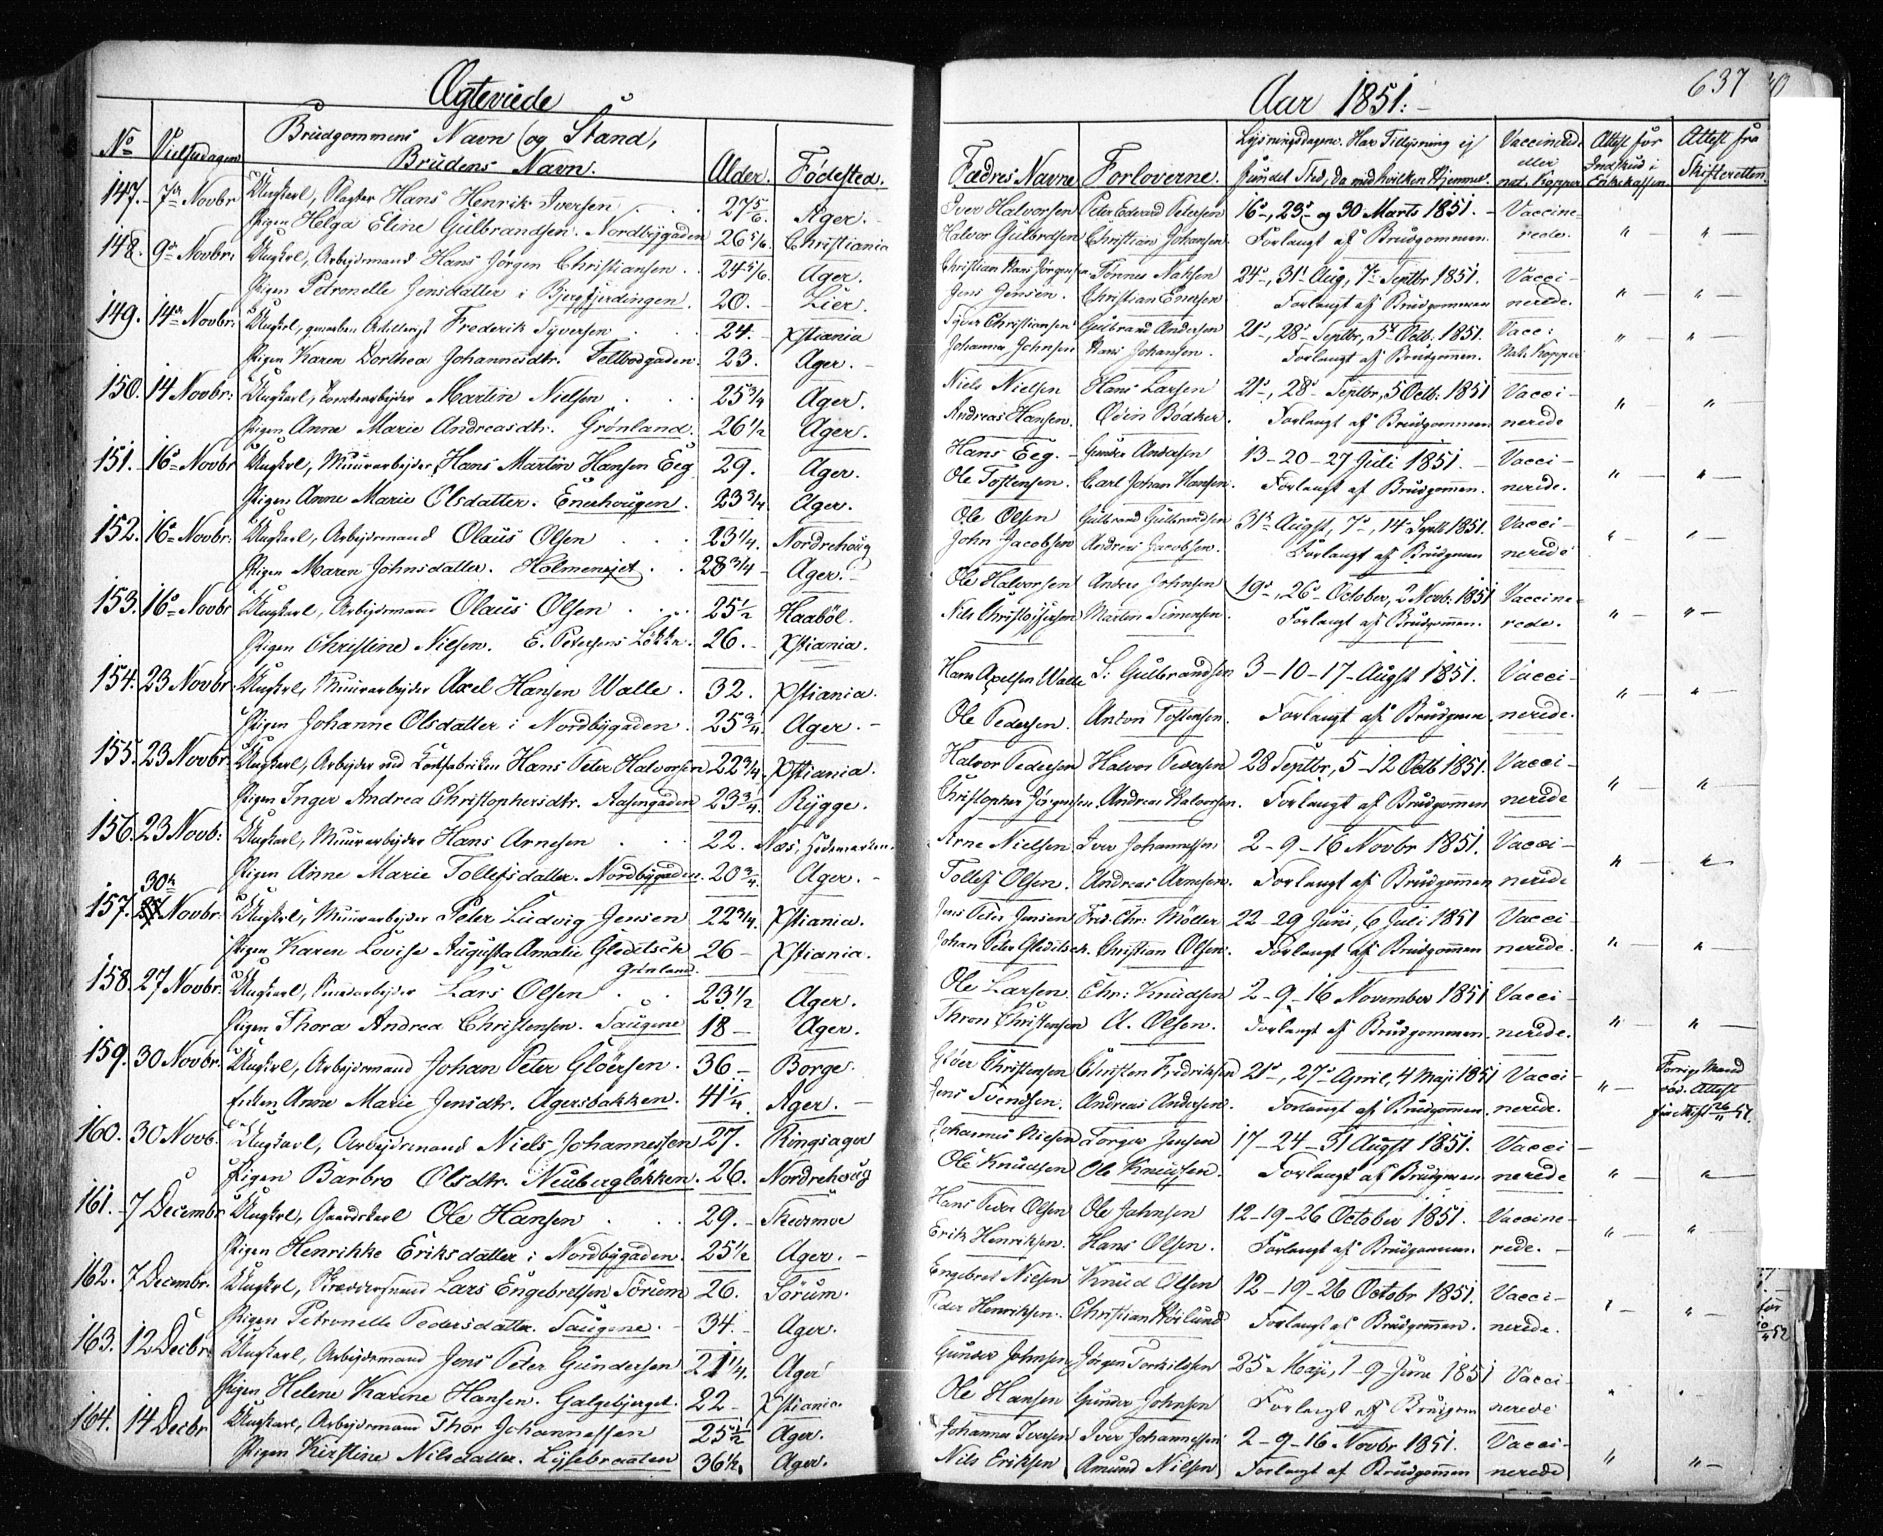 Ægteviede
Aar 1851.
637
No
Vielsesdagen
Brudgommens Navn og Stand,
Brudens Navn.
Alder.
Fødested.
Fædres Navne
Forloverne.
Lysningsdagene. Har Tillysning ej
fundet Sted, da med hvilken Hjemmel.
Vaccinerede
eller
nat. Kopper
Attest for
Indskud i
Enkekassen
Attest fra
Skifteretten.
147. 7de Novbr Ungkarl, Slagter Hans Henrik Iversen 27 5/6 Ager. Iver Halvorsen Peter Edvard Petersen 16de, 23de og 30 Marts 1851. Vaccine-
Pigen Helga Eline Gulbrandsen. Nordbygaden 26 5/6 Christiania Halvor Gulbrandsen Christian Johansen Forlangt af Brudgommen. rede. " "
148. 9de Novbr. Ungkarl, Arbeidsmand Hans Jørgen Christiansen 24 5/6 Ager. Christian Hans Jørgensen Tønnes Naksen 24de, 31te Aug, 7de Septbr 1851. Vacci-
Pigen Petronelle Jensdatter i Bjergfjerdingen. 20. Lier. Jens Jensen. Christian Enersen Forlangt af Brudgommen nerede. " "
149. 14de Novbr: Ungkarl, Frederik Syversen 24. Xstiania Syver Christiansen Gulbrand Andersen 21de, 28de Septbr, 5te Octb: 1851. Vacc:
Pigen Karen Dorthea Johannesdtr. Feltbodgaden. 23. Ager. Johannes Johnsen Hans Johansen. Forlangt af Brudgommen. Nat: Kopper " "
150. 14 Novbr: Ungkarl, Tomtearbeider Martin Nielsen 25 3/4 Ager. Niels Nielsen Hans Larsen 21de, 28de Septbr, 5 Octb: 1851 Vacci-
Pigen Anne Marie Andreasdtr. Grønland. 26 1/2 Ager. Andreas Hansen. Odin Bødker. Forlangt af Brudgommen nerede " "
151. 16de Novbr Ungkarl, Muurarbeider, Hans Martin Hansen Eeg 29. Ager. Hans Eeg. Gunder Andersen 13-20-27 Juli 1851. Vacci-
Pigen Anne Marie Olsdatter. Enerhougen. 23 3/4 Ager. Ole Tostensen. Carl Johan Hansen. Forlangt af Brudgommen. nerede. " "
152. 16de Novbr. Ungkarl, Arbeidsmand Olaus Olsen 23 1/4. Nordrehoug Ole Olsen Gulbrand Gulbrandsen 31te Augst, 7de, 14de Septb 1851. Vacci-
Pigen Maren Johnsdatter. Holmensjet. 28 3/4 Ager. John Jacobsen Andreas Jacobsen. Forlangt af Brudgommen nerede " "
153. 16de Novbr Ungkarl, Arbeidsmand Olaus Olsen 25 1/2 Haabøl. Ole Halvorsen Anders Johnsen 19de, 26de October, 2 Novb: 1851 Vaccine-
Pigen Christine Nilsen. E. Petersens Løkke. 26. Xstiania. Nils Christophersen Martin Simensen. Forlangt af Brudgommen. rede. " "
154. 23 Novbr. Ungkarl, Muurarbeider Axel Hansen Walle. 32. Xstiania. Hans Axelsen Walle S: Gulbrandsen 3-10-17 Augst 1851. Vacci-
Pigen Johanne Olsdatter i Nordbygaden. 25 3/4. Ager. Ole Pedersen. Anton Tostensen. Forlangt af Brudgommen nerede. " "
155. 23 Novbr. Ungkarl, Arbeider ved Hans Peter Halvorsen 22 3/4. Xstiania. Halvor Pedersen Halvor Pedersen 28 Septbr, 5-12 Octb 1851. Vacci-
Pigen Inger Andrea Christophersdtr. Aasengaden 23 3/4. Rygge. Christopher Jørgensen Andreas Halvorsen. Forlangt af Brudgommen nerede " "
156. 23 Novb: Ungkarl, Muurarbeider Hans Arnesen 22. Næs, Hedemarken. Arne Nielsen Iver Johannessen 2-9-16 Novbr 1851. Vacci-
Pigen Anne Marie Tollefsdatter. Nordbygaden. 20 3/4. Ager. Tollef Olsen. Andreas Arnesen. Forlangt af Brudgommen nerede " "
157. 30te Novbr. Ungkarl, Muurarbeider Peter Ludvig Jensen 22 3/4. Xstiania. Jens Peter Jensen Fred: Chr: Möller 22-29 Juni, 6 Juli 1851 Vacci-
Pigen Karen Lovise Augusta Amalie Gleditsch Grønland. 26 Xstiania. Johan Peter Gleditsch. Christian Olsen. Forlangt af Brudgommen nerede. " "
158. 27 Novbr. Ungkarl, Lars Olsen 23 1/2 Ager. Ole Larsen Chr: Knudsen 2-9-16 November 1851 Vacci-
Pigen Thora Andrea Christensen. Saugene 18 Ager. Thron Christensen A. Olsen. Forlangt af Brudgommen nerede. " "
159. 30 Novbr. Ungkarl, Arbeidsmand Johan Peter Glöersen. 36 Borge. Glöer Christensen Christen Fredriksen 21de, 27de April, 4 Maji 1851 Vacci-
Enken Anne Marie Jensdtr. Agersbakken. 41 1/4. Ager. Jens Svendsen. Andreas Andersen. Forlangt af Brudgommen nerede. " Forrige Mand
død. Attest
fra Skift 26/11 51.
160. 30 Novb. Ungkarl, Arbeidsmand Niels Johannessen 27. Ringsager Johannes Niesen Torger Jensen 17-24-31 Augst 1851. Vacci-
Pigen Barbro Olsdtr. Neuberglökken. 26. Nordrehoug Ole Knudsen Ole Knudsen. Forlangt af Brudgommen nerede " "
161. 7 Decembr Ungkarl, Gaardskarl Ole Hansen 29. Hans Peder Olsen Ole Johnsen 12-19-26 October 1851. Vaccine-
Pigen Henrikke Eriksdatter i Nordbygaden. 25 1/2 Ager. Erik Henriksen. Hans Olsen. Forlangt af Brudgommen. rede. " "
162. 7 Decembr. Ungkarl, Skræddersvend Lars Engebretsen Sörum 26. Sörum. Engebret Nielsen Knud Olsen 12-19-26 Octobr 1851. Vacci-
Pigen Petronelle Pedersdatter. Saugene. 34. Ager. Peder Henriksen. Christian Hörlund Forlangt af Brudgommen. nerede. " "
163. 12 Decbr. Ungkarl, Arbeidsmand Jens Peter Gundersen 21 1/4. Ager Gunder Johnsen Jørgen Torkildsen 25 Maji, 1-9 June 1851 Vacci-
Pigen Helene Karine Hansen. Galgebjerget. 22 Xstiania. Ole Hansen Gunder Johnsen Forlangt af Brudgommen nerede " "
164. 14 Decbr Ungkarl, Arbeidsmand Thor Johannessen 25 1/2 Ager. Johannes Iversen Iver Johannessen 2-9-16 Novbr 1851. Vacci-
Pigen Kirstine Nilsdatter. Lysebraaten 36 1/2. Ager. Nils Eriksen Amund Nilsen Forlangt af Brudgommen nerede " "